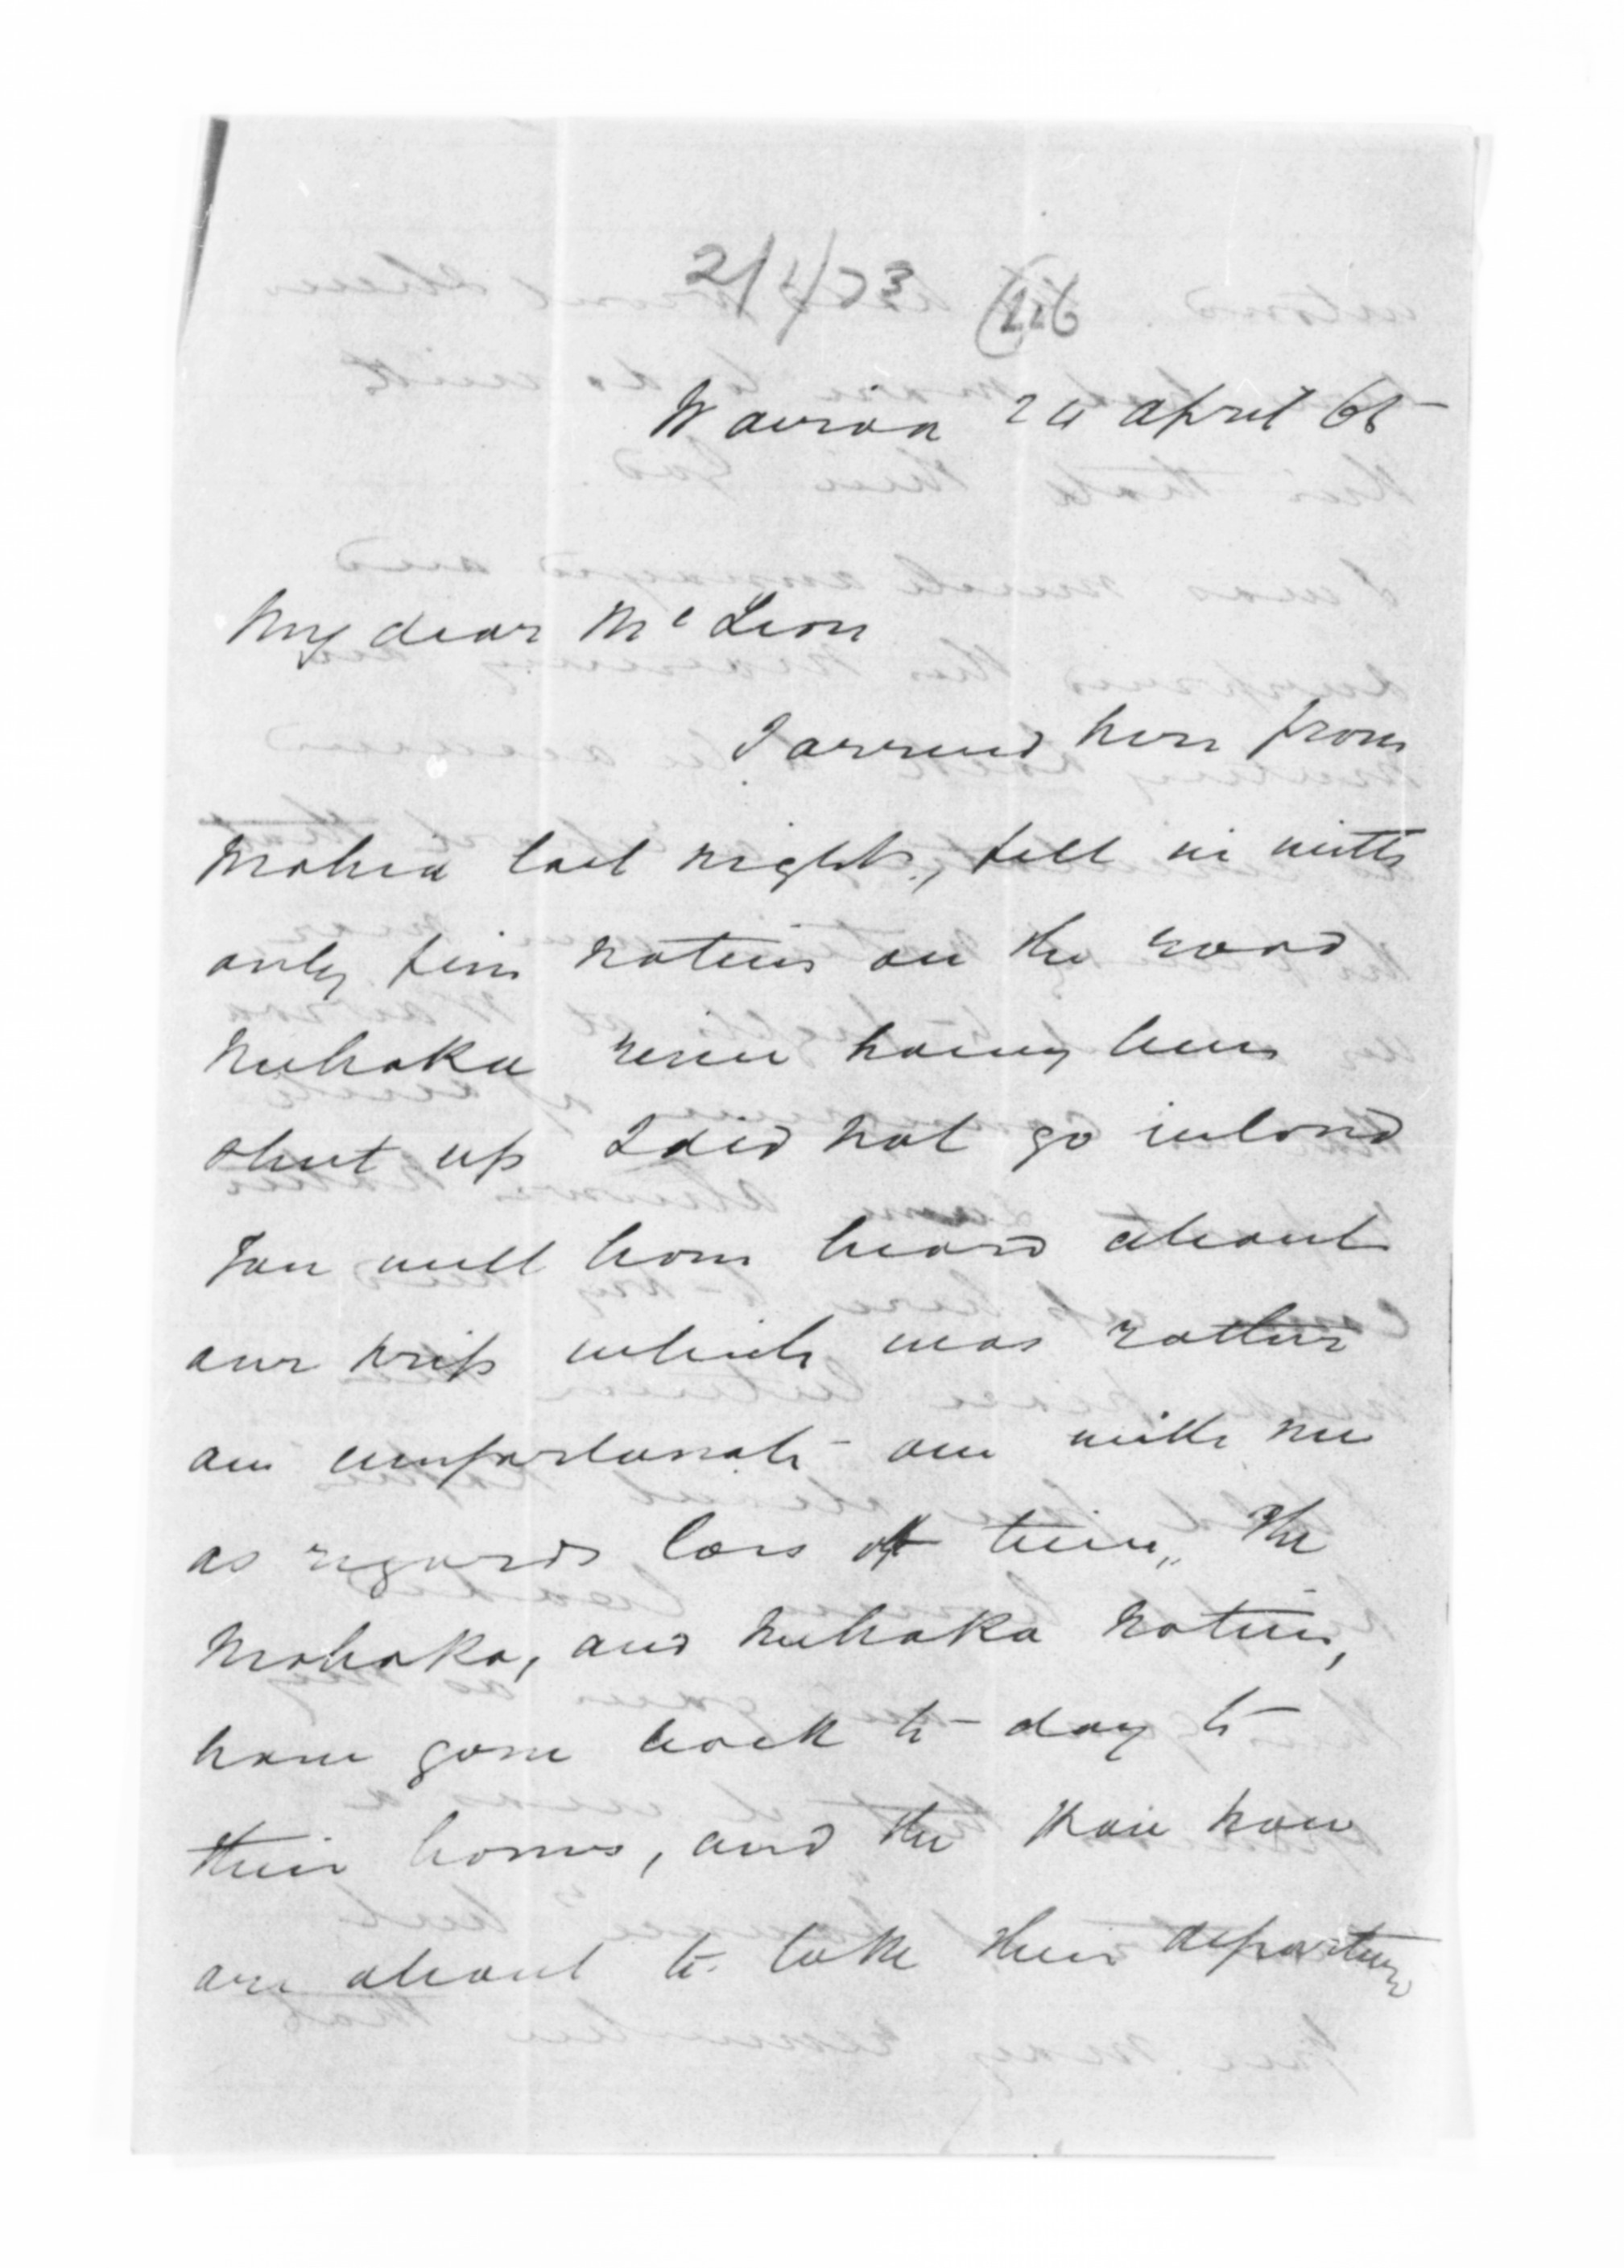 2/4/73 (116
Wairoa 24 april 65
My dear McLean
I arrived here from
Mahia last night, fell in with
only five natives on the road
Nuhaka river having been
shut up I did not go inland
You will have heard about
our trip which was rather
an unfortunate one with me
as regards loss of time,, The
Mohaka, and Nuhaka natives,
have gone back to-day to
their homes, and the
are about to take their departure